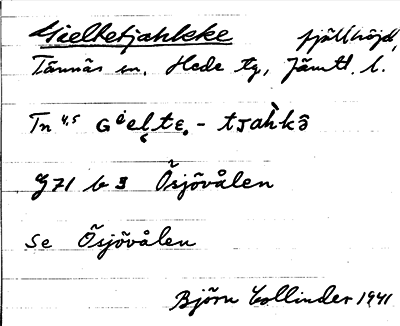 Gieltetjahkke fjällhöjd,
Tännäs sn, Hede tg, Jämtl. l.
Tn 4,5 Gėel̨tᴇ. - tᴊah̀kô
G71 b 3 Õsjövålen
Se Õsjövålen
Björn Collinder 1941